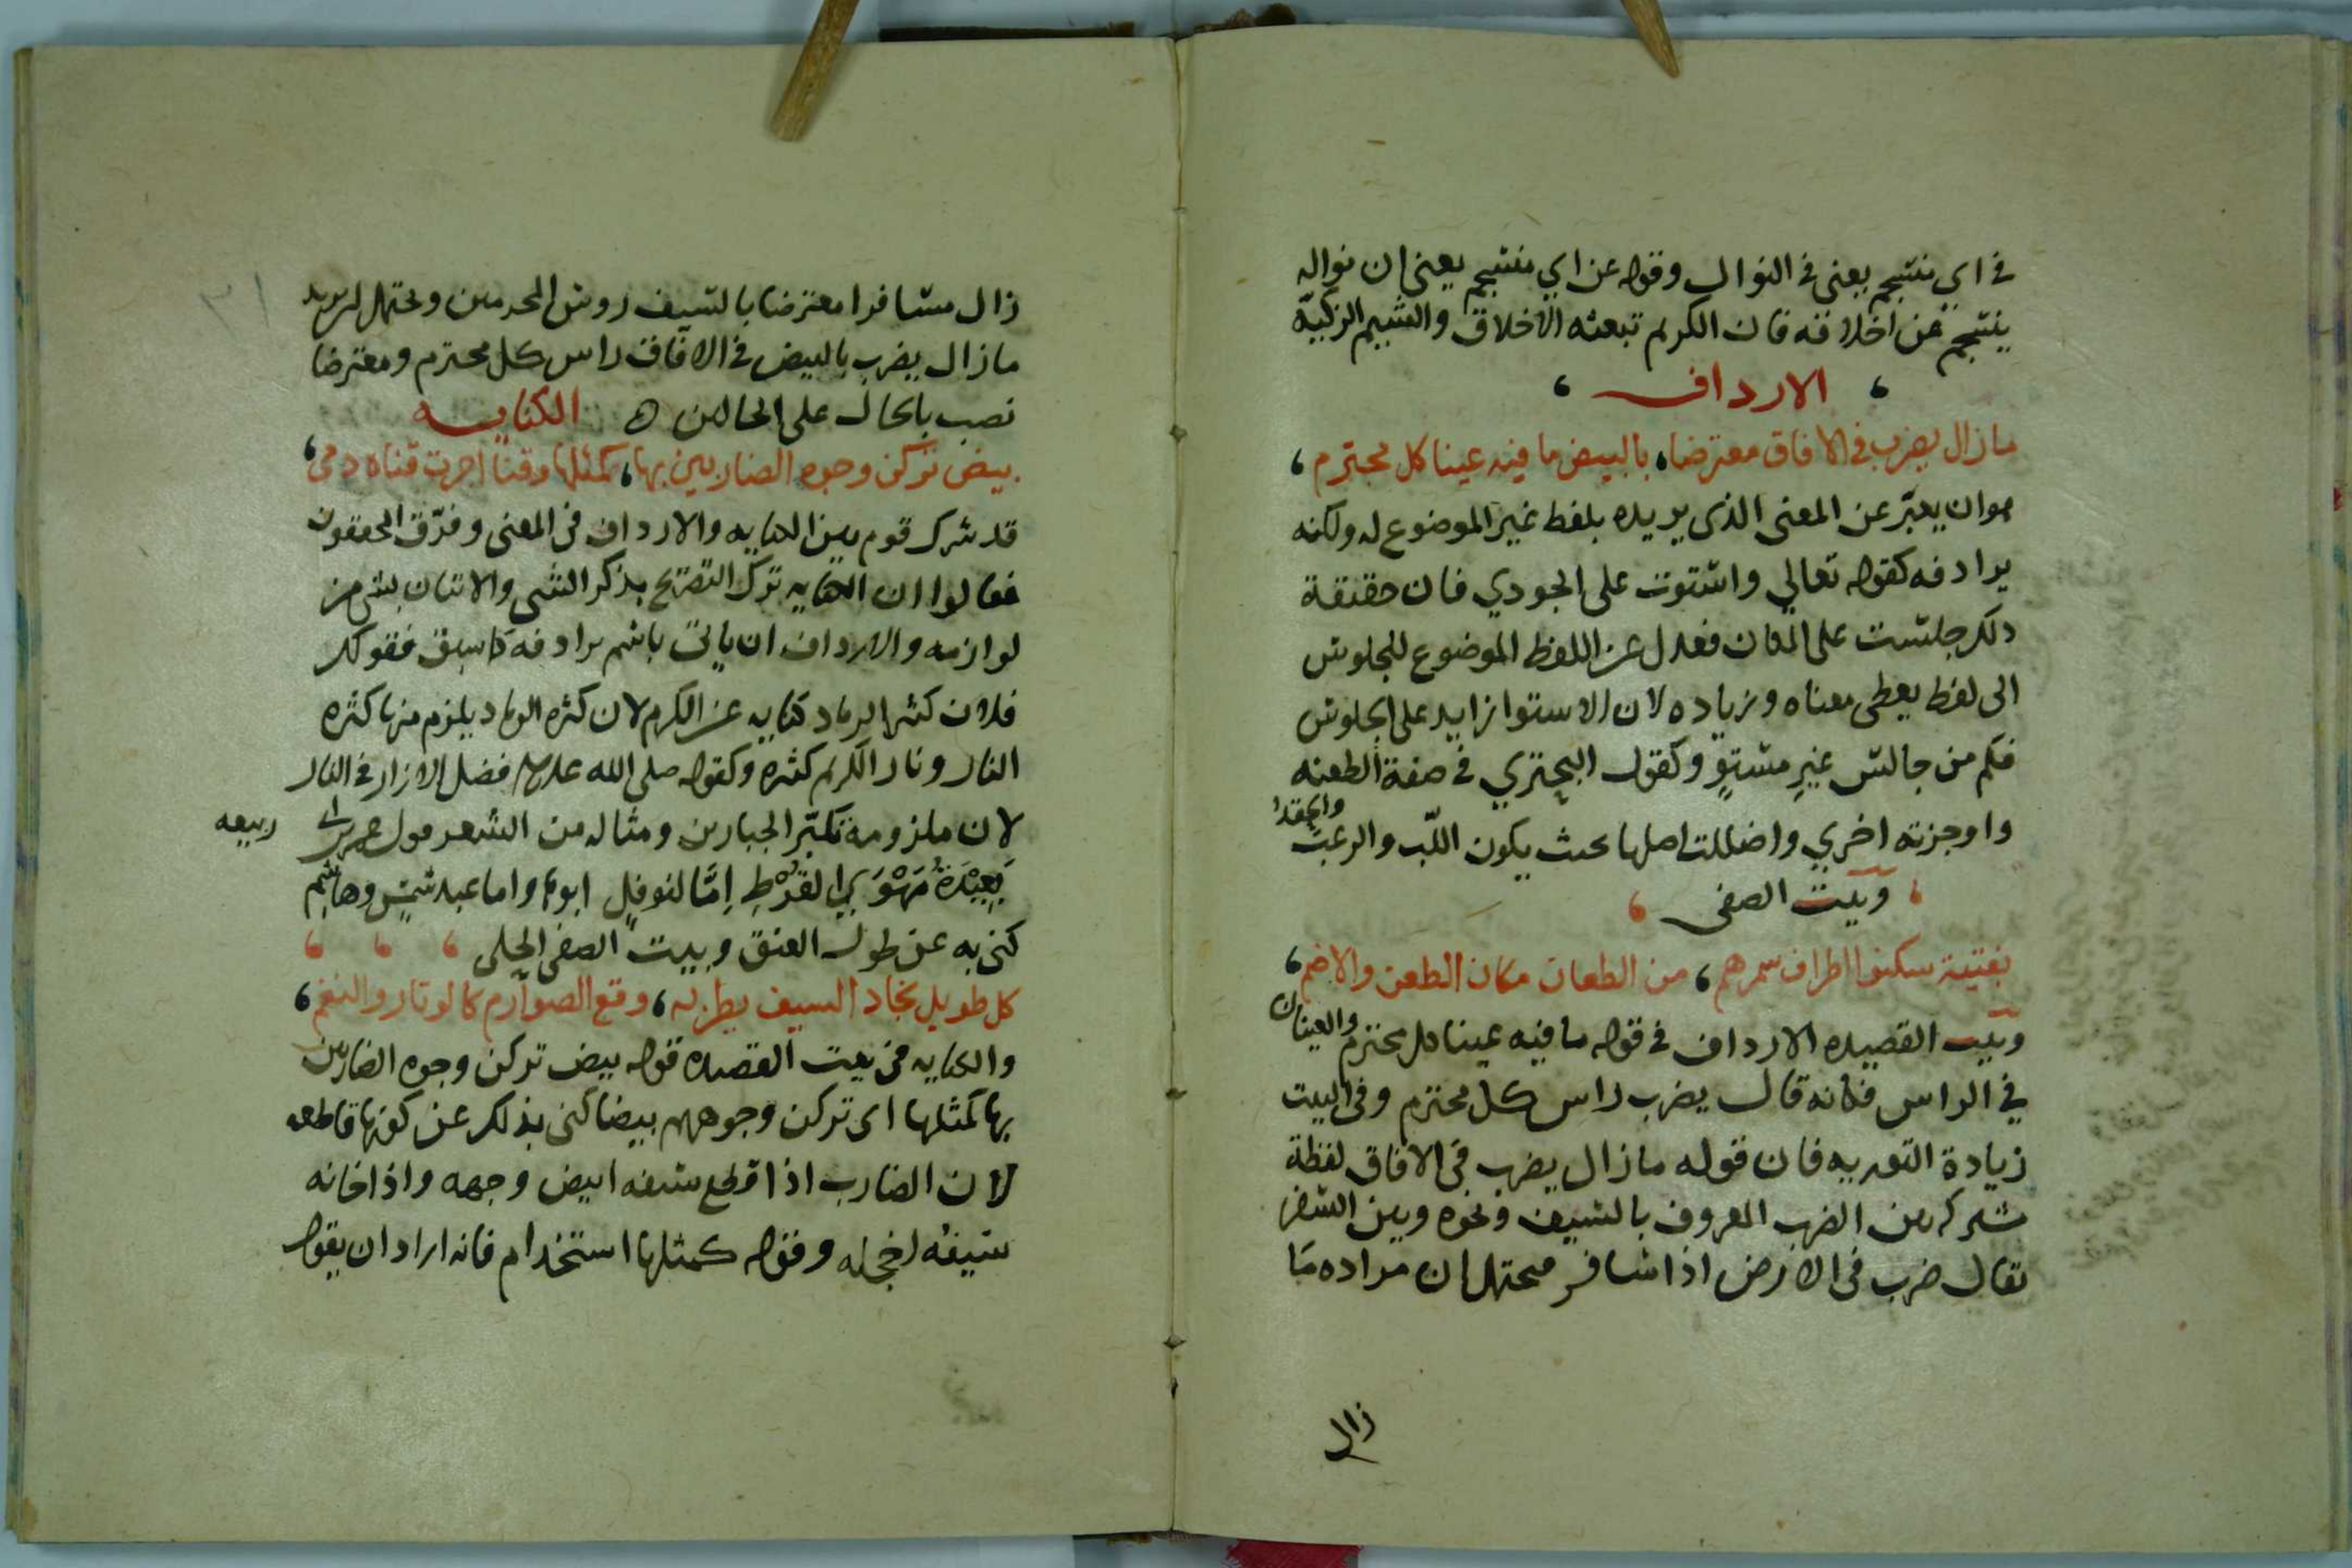 في اي منتجم يعني في النوال وقوله عن اي منتجم يعني ان نواله
ينتجم عن اخلاقه فان الكريم تبعثه الاخلاق والشيم الزكية
، الارداف ،
ما زال يضرب في الافاق معترضا، بالبيض ما فيه عينا كل محترم ،
هو ان يعبّر عن المعنى الذي يريده بلفظ غير الموضوع له ولكنه
يرادفه كقوله تعالي واستوت على الجودي فان حقيقة
ذلك جلست على المكان فعدل عن اللفظ الموضوع للجلوس
الى لفظ يعطى معناه وزياده لان الاستوا زايد على الجلوس
فكم من جالس غير مستوٍ وكقول البحتري في صفة الطعنه
واوجزته اخري واضللت اصلها بحيث يكون اللّب والرعب والحقد
، وبيت الصفى ،
بفتية سكنوا اطراف سمرهم ، من الطعان مكان الطعن والاضم ،
وبيت القصيده الارداف في قوله ما فيه عينا كل محترم والعينان
في الراس فكانه قال يضرب راس كل محترم وفي البيت
زيادة التوريه فان قوله ما زال يضرب في الافاق لفظة
مشتركه بين الضرب المعروف بالسيف ونحوه وبين السفر
يقال ضرب في الارض اذا سافر فيحتمل ان مراده ما
زال
زال مسافرا معترضا بالسيف روس المحرمين ويحتمل ان يريد
ما زال يضرب بالبيض في الافاق راس كل محترم ومعترضا
نصب بالحال على الحالين ه الكنايه
بيض تركن وجوه الضاربين بها، كمثلها وقنا اجرت قناه دمى ،
قد شرك قوم بين الكنايه والارداف في المعنى وفرّق المحققون
فقالوا ان الكنايه ترك التصريح بذكر الشى والاتيان بشى من
لوازمه والارداف ان ياتى باسم يرادفه كما سبق فقولك
فلان كثير الرماد كنايه عن الكرم لان كثره الرماد يلزم منها كثره
النار ونار الكريم كثيره وكقوله صلى الله عليه وسلم فضل الازار في النار
لان ملزومه تكبّر الجبارين ومثاله من الشعر قول عمر بن ابى ربيعه
بَعِيْدَةُ مَهْوَي القُرْطِ اِمَّا لنوفلٍ ابوها واما عبد شمسٍ وهاشم
كنى به عن طول العنق وبيت الصفى الحلى ، ، ،
كل طويل نجاد السيف يطربه ، وقع الصوارم كالاوتار والنغم ،
والكنايه في بيت القصيده قوله بيض تركن وجوه الضاربين
بها كمثلها اى تركن وجوههم بيضا كنى بذلك عن كونها قاطعه
لان الضارب اذا قطع سيفه ابيض وجهه واذا خانه
سيفه اخجله وقوله كمثلها استخدام فانه اراد ان يقول